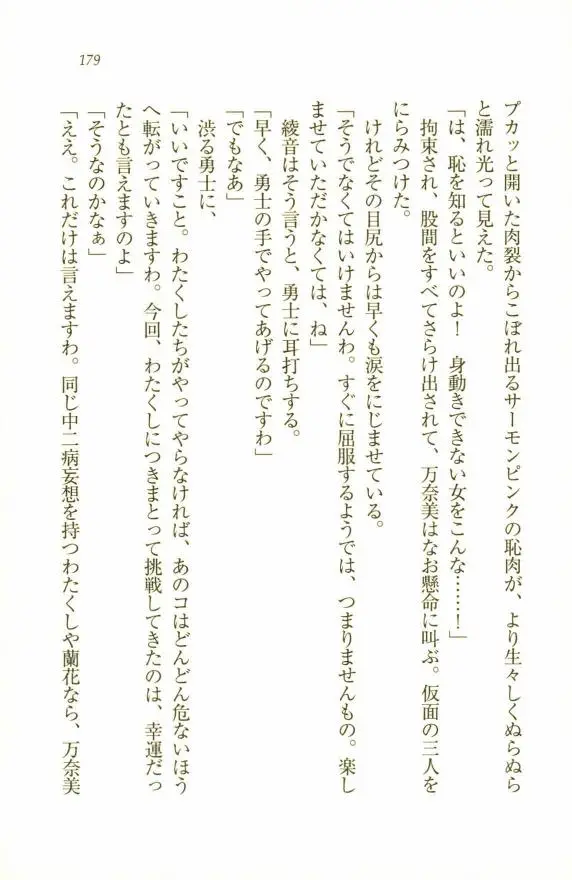 179
プカッと開いた肉裂からこぼれ出るサーモンピンクの恥肉が、より生々しくぬらぬら
と濡れ光って見えた。
「は、恥を知るといいのよ！　身動きできない女をこんな……！」
拘束され、股間をすべてさらけ出されて、万奈美はなお懸命に叫ぶ。仮面の三人を
にらみつけた。
けれどその目尻からは早くも涙をにじませている。
「そうでなくてはいけませんわ。すぐに屈服するようでは、つまりませんもの。楽し
ませていただかなくては、ね」
綾音はそう言うと、勇士に耳打ちする。
「早く、勇士の手でやってあげるのですわ」
「でもなあ」
渋る勇士に、
「いいですこと。わたくしたちがやってやらなければ、あのコはどんどん危ないほう
へ転がっていきますわ。今回、わたくしにつきまとって挑戦してきたのは、幸運だっ
たとも言えますのよ」
「そうなのかなぁ」
「ええ。これだけは言えますわ。同じ中二病妄想を持つわたくしや蘭花なら、万奈美